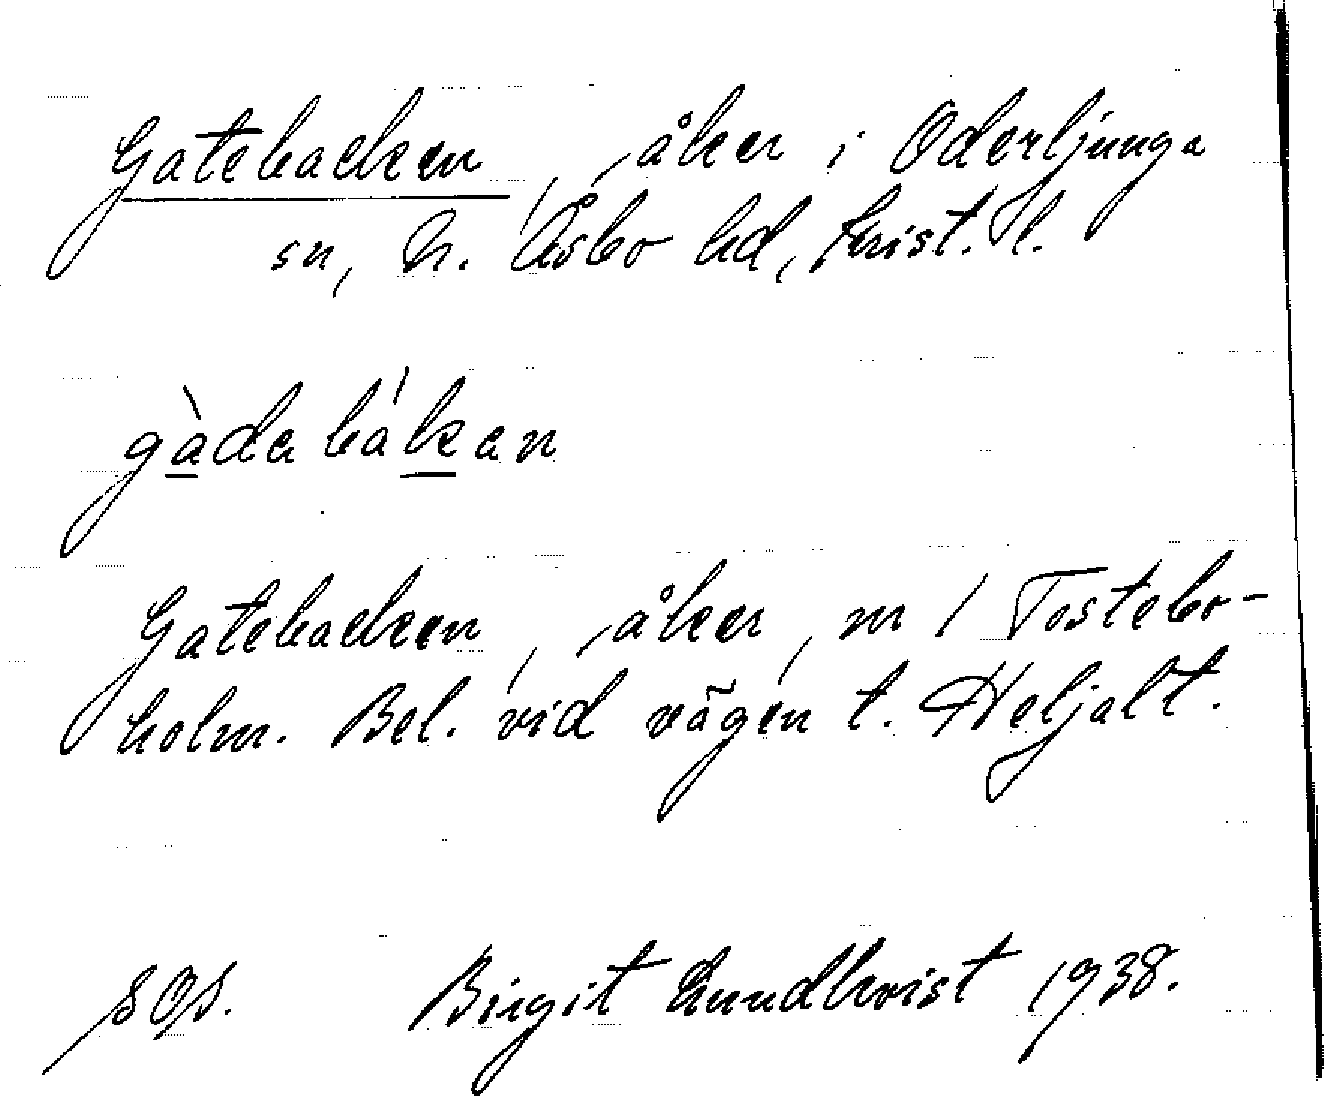 Gatebacken, åker i Oderljunga
sn, N. Åsbo hd, Krist. l.
gàdabákan
Gatebacken, åker, nr 1 Tostebo-
holm. Bel. vid vägen t. Heljalt.
SOS. Birgit Lundkvist 1938.